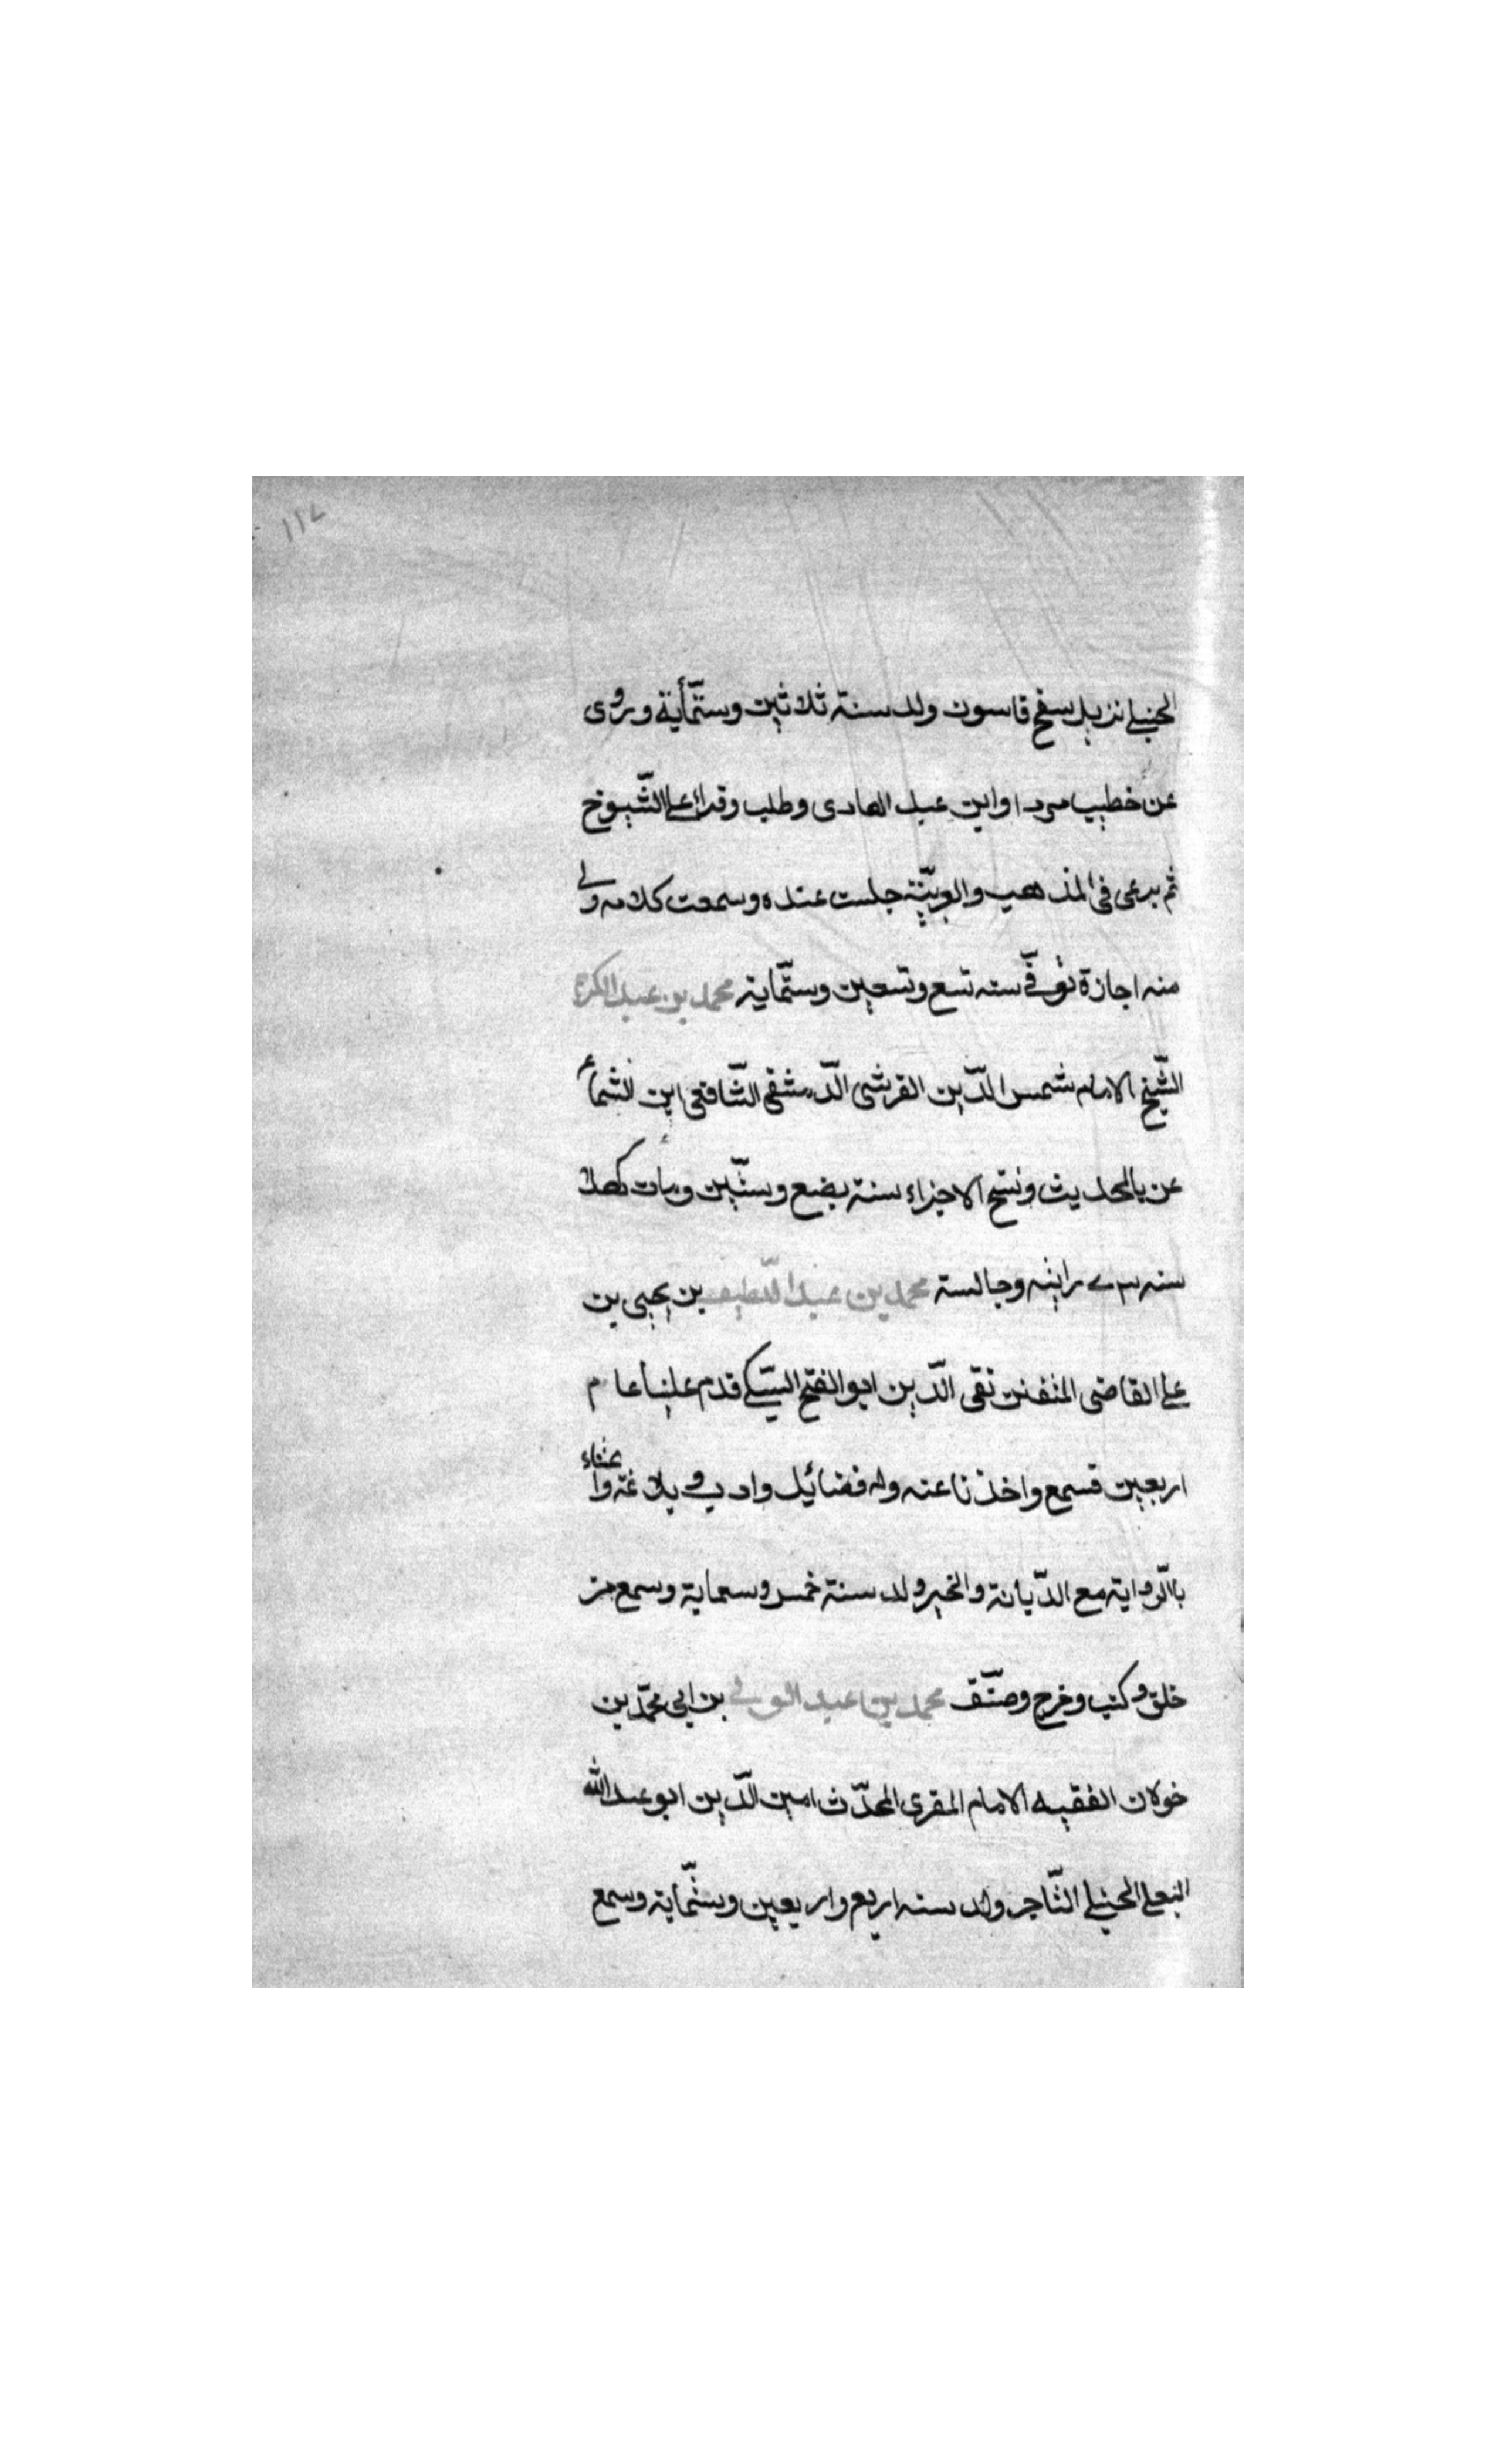 ١١٧
الحنبلي نزيل سفح قاسون ولد سنة ثلاثين وستمأية وروى
عن خطيب مردا وابن عبد الهادى وطلب وقرا على الشيوخ
ثم برع فى المذهب والعربية جلست عنده وسمعت كلامه ولي
منه اجازة توفي سنه تسع وتسعين وستماية محمد بن عبد الكريم
الشيخ الامام شمس الدين القرشى الدمشقى الشافعى ابن الشماع
عن بالحديث ونسخ الاجزاء سنة بضع وستين ومات كهلا
سنه رايته وجالسته محمد بن عبد اللطيف بن يحيى بن
على القاضى المتفنن تقى الدين ابو الفتح السبكي قدم علينا عام
اربعين فسمع واخذنا عنه وله فضائيل وادب وبلاغة واعتناء
بالرواية مع الديانة والخير ولد سنة خمس وسبعماية وسمع من
خلق وكتب وخرج وصنف محمد بن عبد الولي بن ابى محمد بن
خولان الفقيه الامام المقرى المحدث امين الدين ابو عبد الله
البعلى الحنبلي التاجر ولد سنه اربع واربعين وستماية وسمع